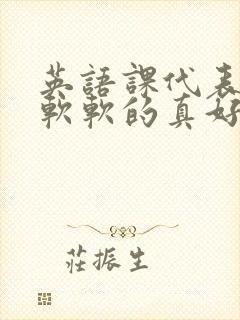 英語課代表
軟軟的真好
莊振生